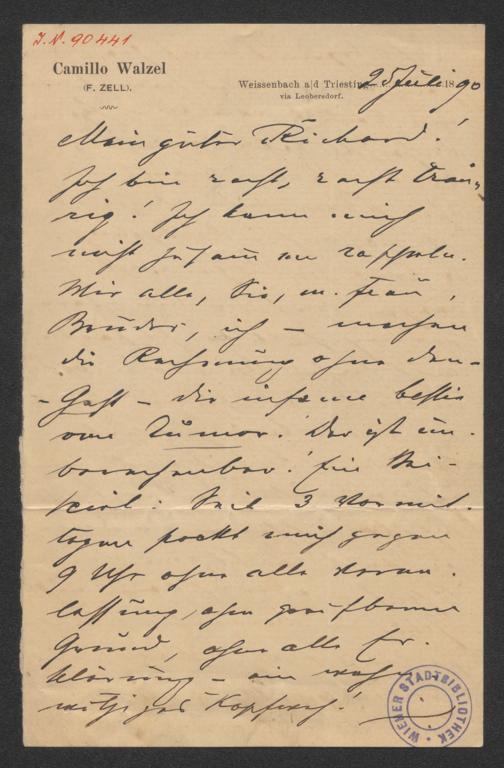 J. N. 90441
Camillo Walzel
(F. ZELL).
Weissenbach a|d Triesting 25 Juli 1890
via Leobersdorf.
Mein guter Richard!
Ich bin recht, recht trau-
rig! Ich kann mich
nicht zusammenrappeln.
Wir alle, Sie, m. Frau,
Bruder, ich – machen
die Rechnung ohne den
Gast – die infame bestie
von Tumor. Der ist un-
berechenbar! Ein Bei-
spiel: Seit 3 Vormit-
tagen packt mich gegen
9 Uhr ohne alle Veran-
lassung, ohne greifbaren
Grund, ohne alle Er-
klärung – ein wahn-
witziges Kopfweh!
WIENER STADTBIBLIOTHEK